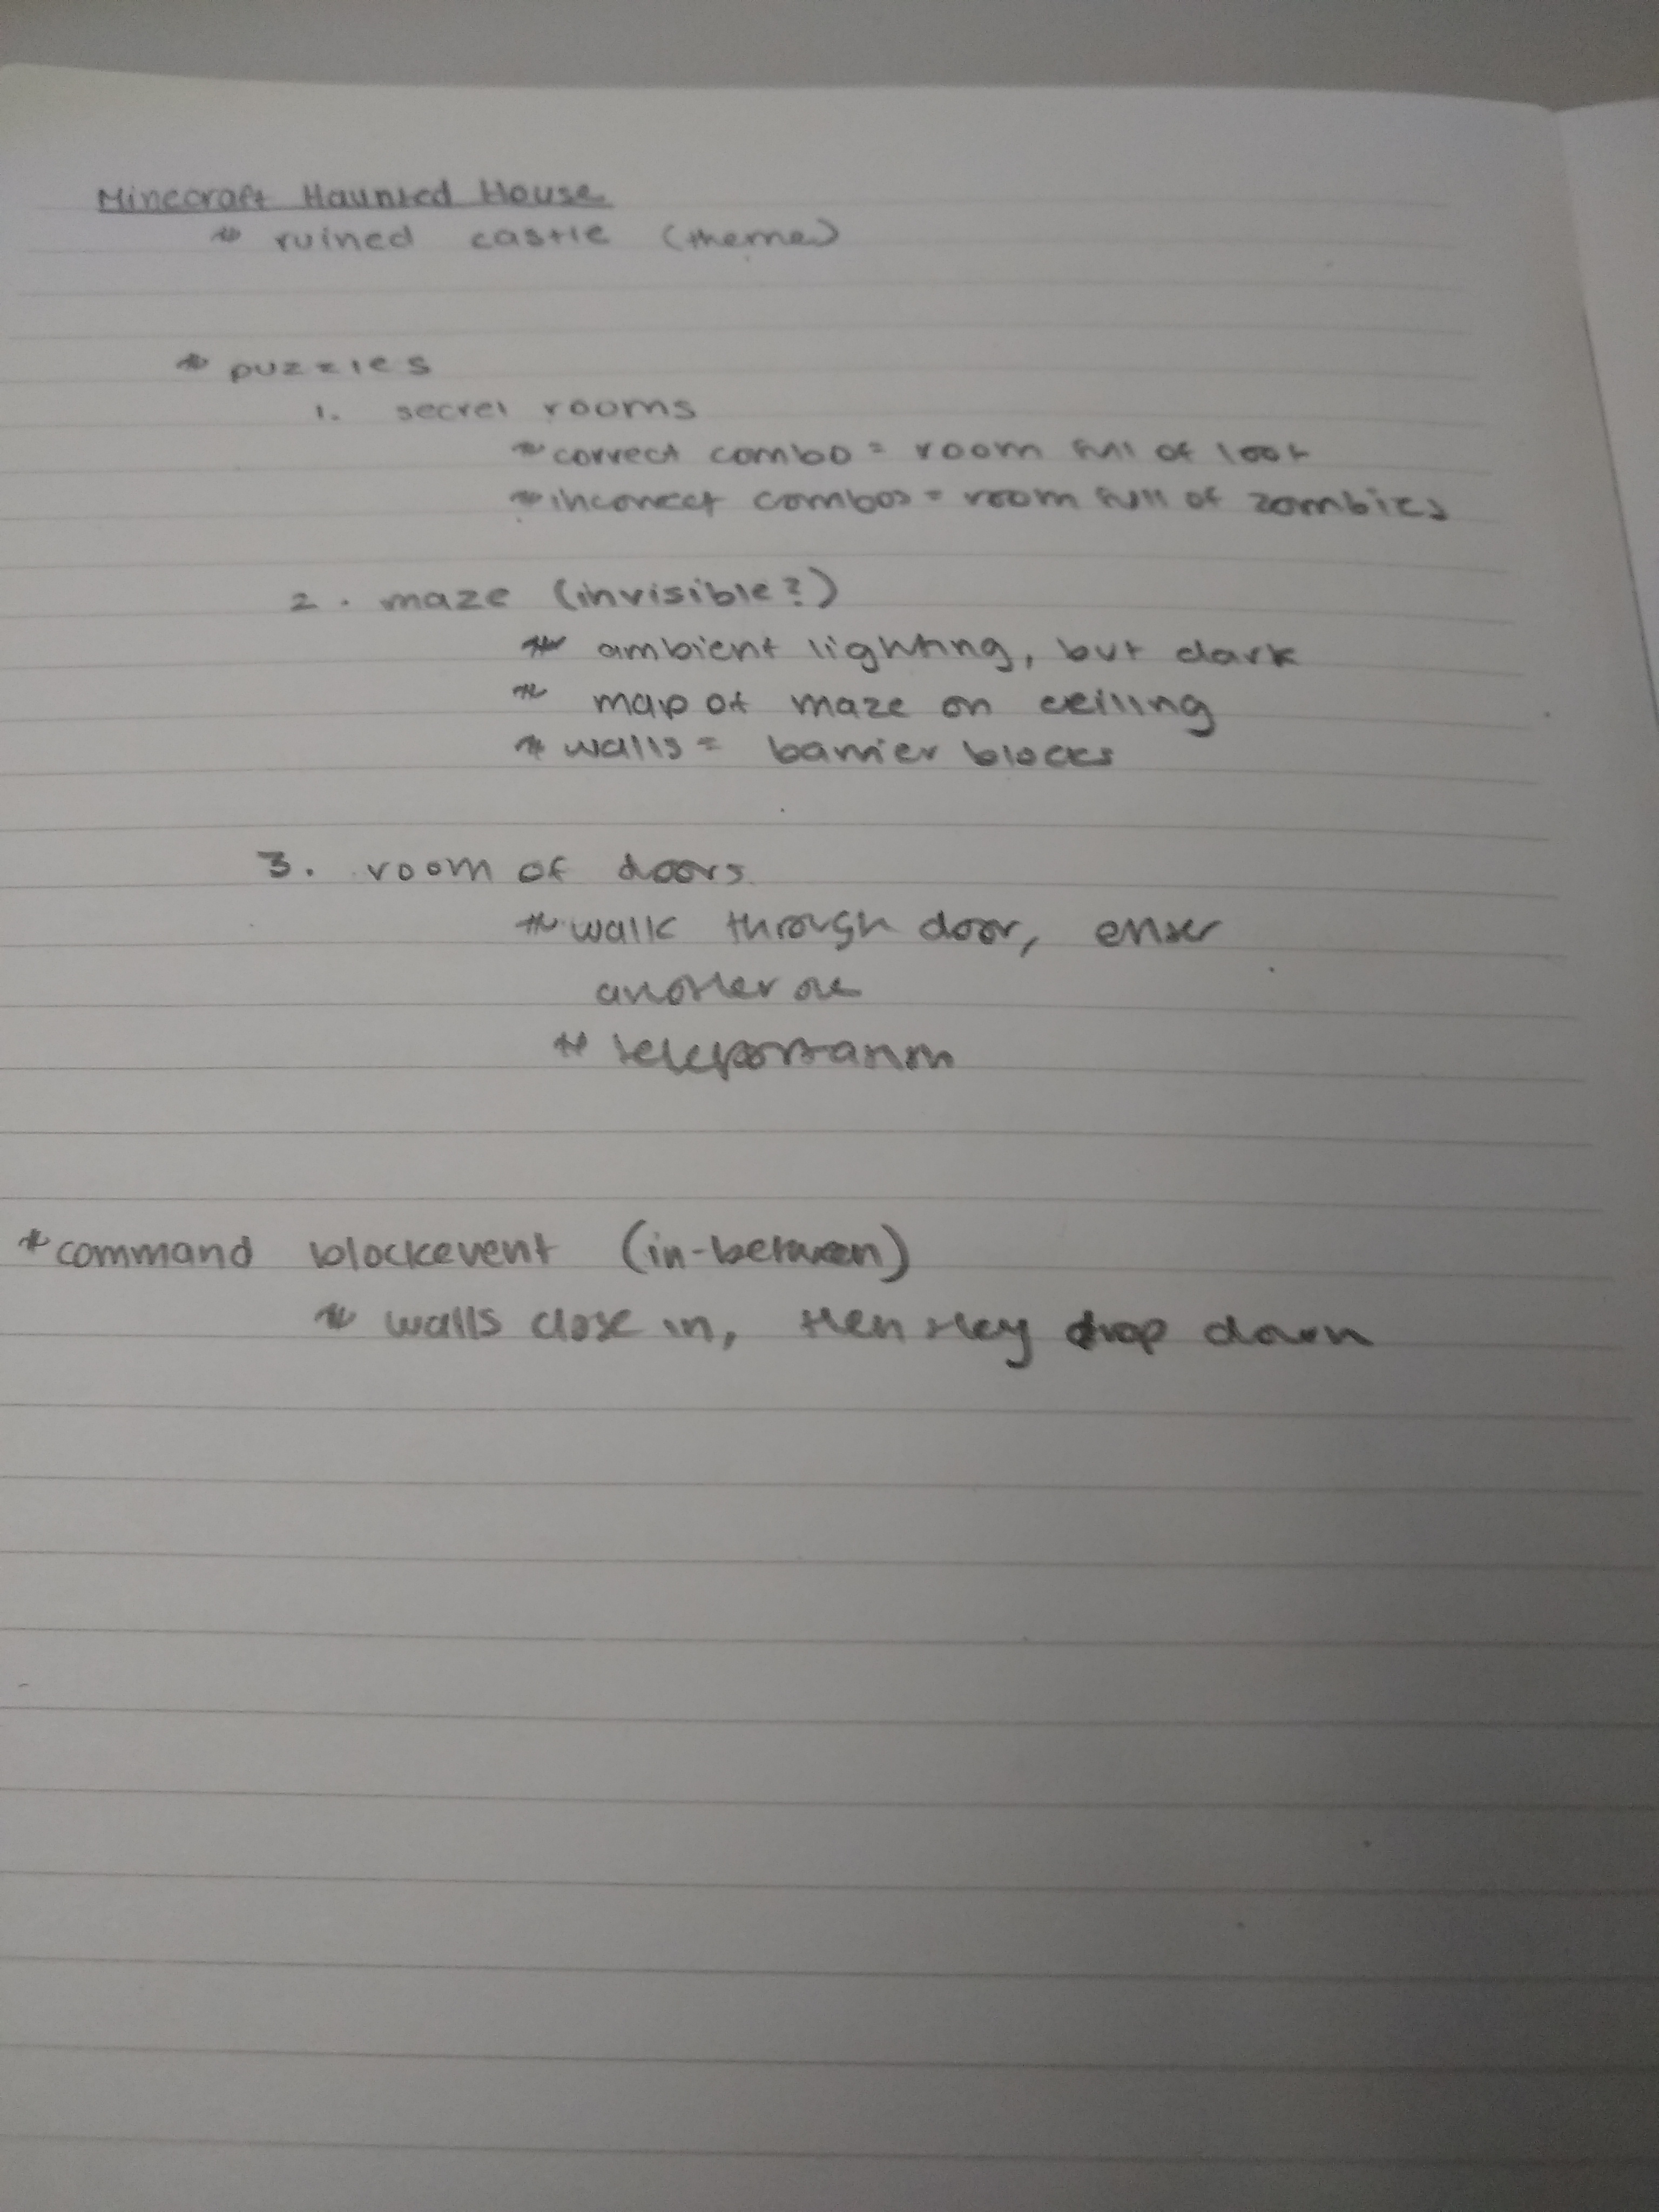 Minecraft Haunted House
* ruined castle (theme)
* puzzles
1. secret rooms
* correct combo = room full of loot
* incorrect combos = room full of zombies
2. maze (invisible?)
* ambient lighting, but dark
* map of maze on ceiling
* walls = barrier blocks
3. room of doors
* walk through door, enter
another one
* teleportation
* command blockevent (in-between)
* walls close in, then they drop down